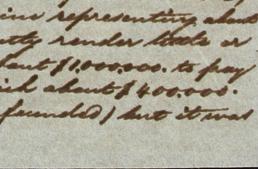 ine representing about
render little or
bout $1.000.000. to pay
ich about $400.000.
funded) but it was